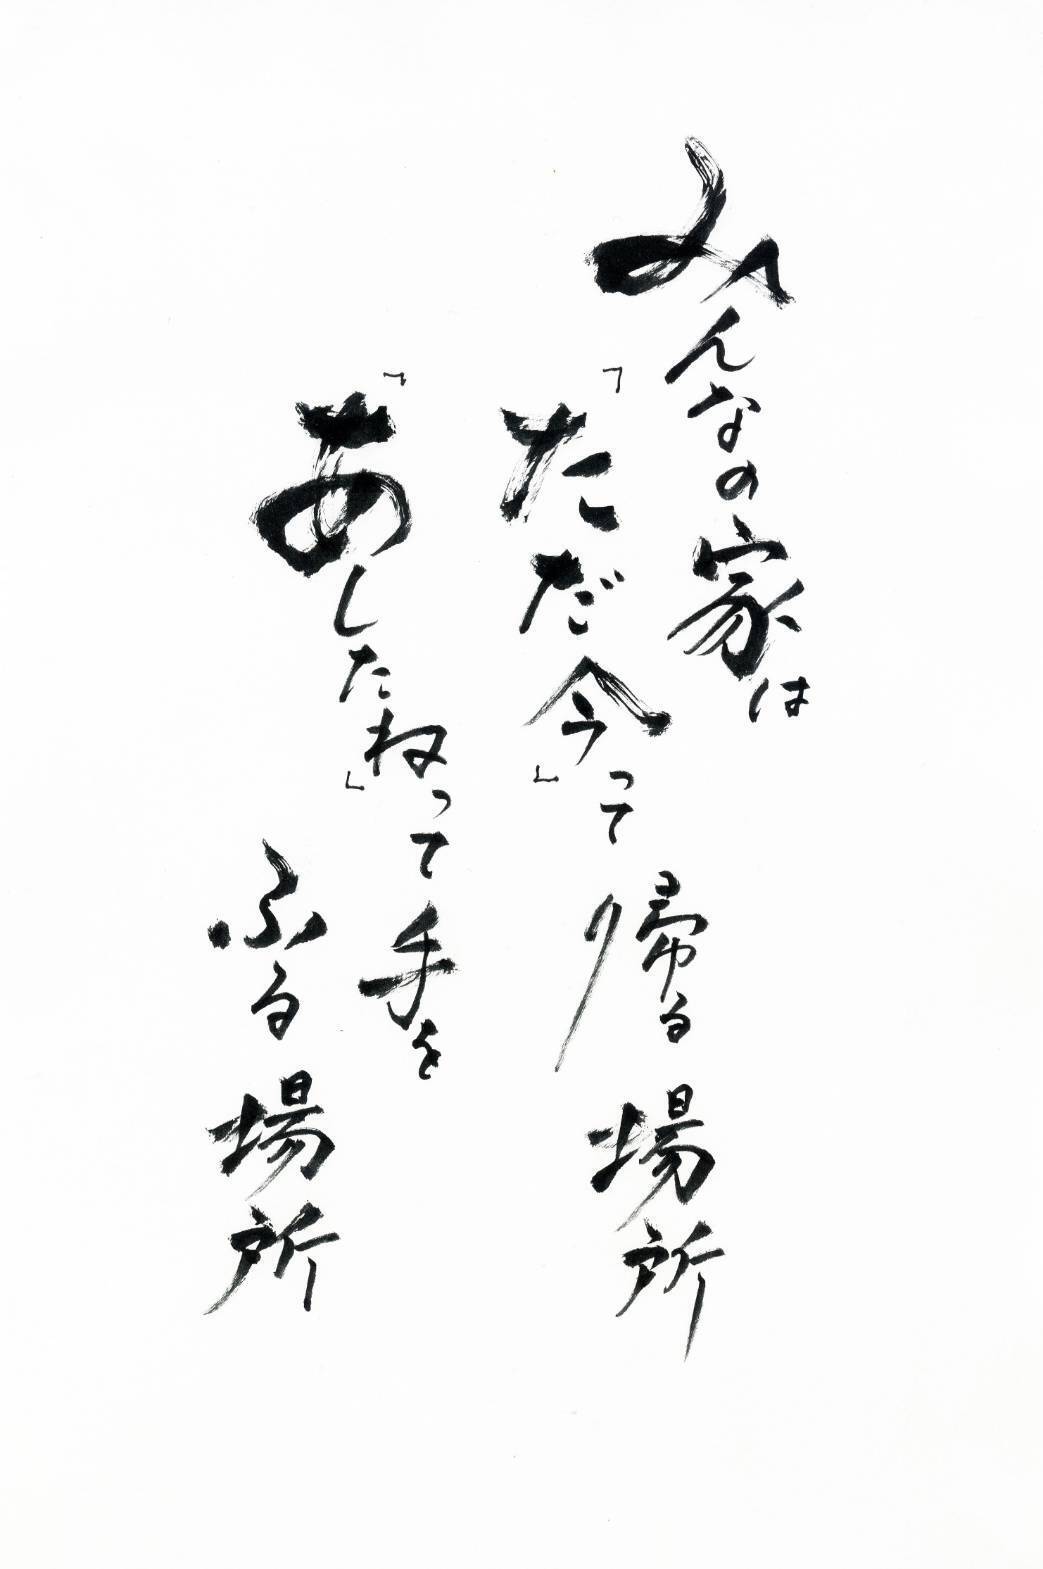 みんなの家は
「ただ今」って帰る場所
「あしたね」って手を
ふる場所